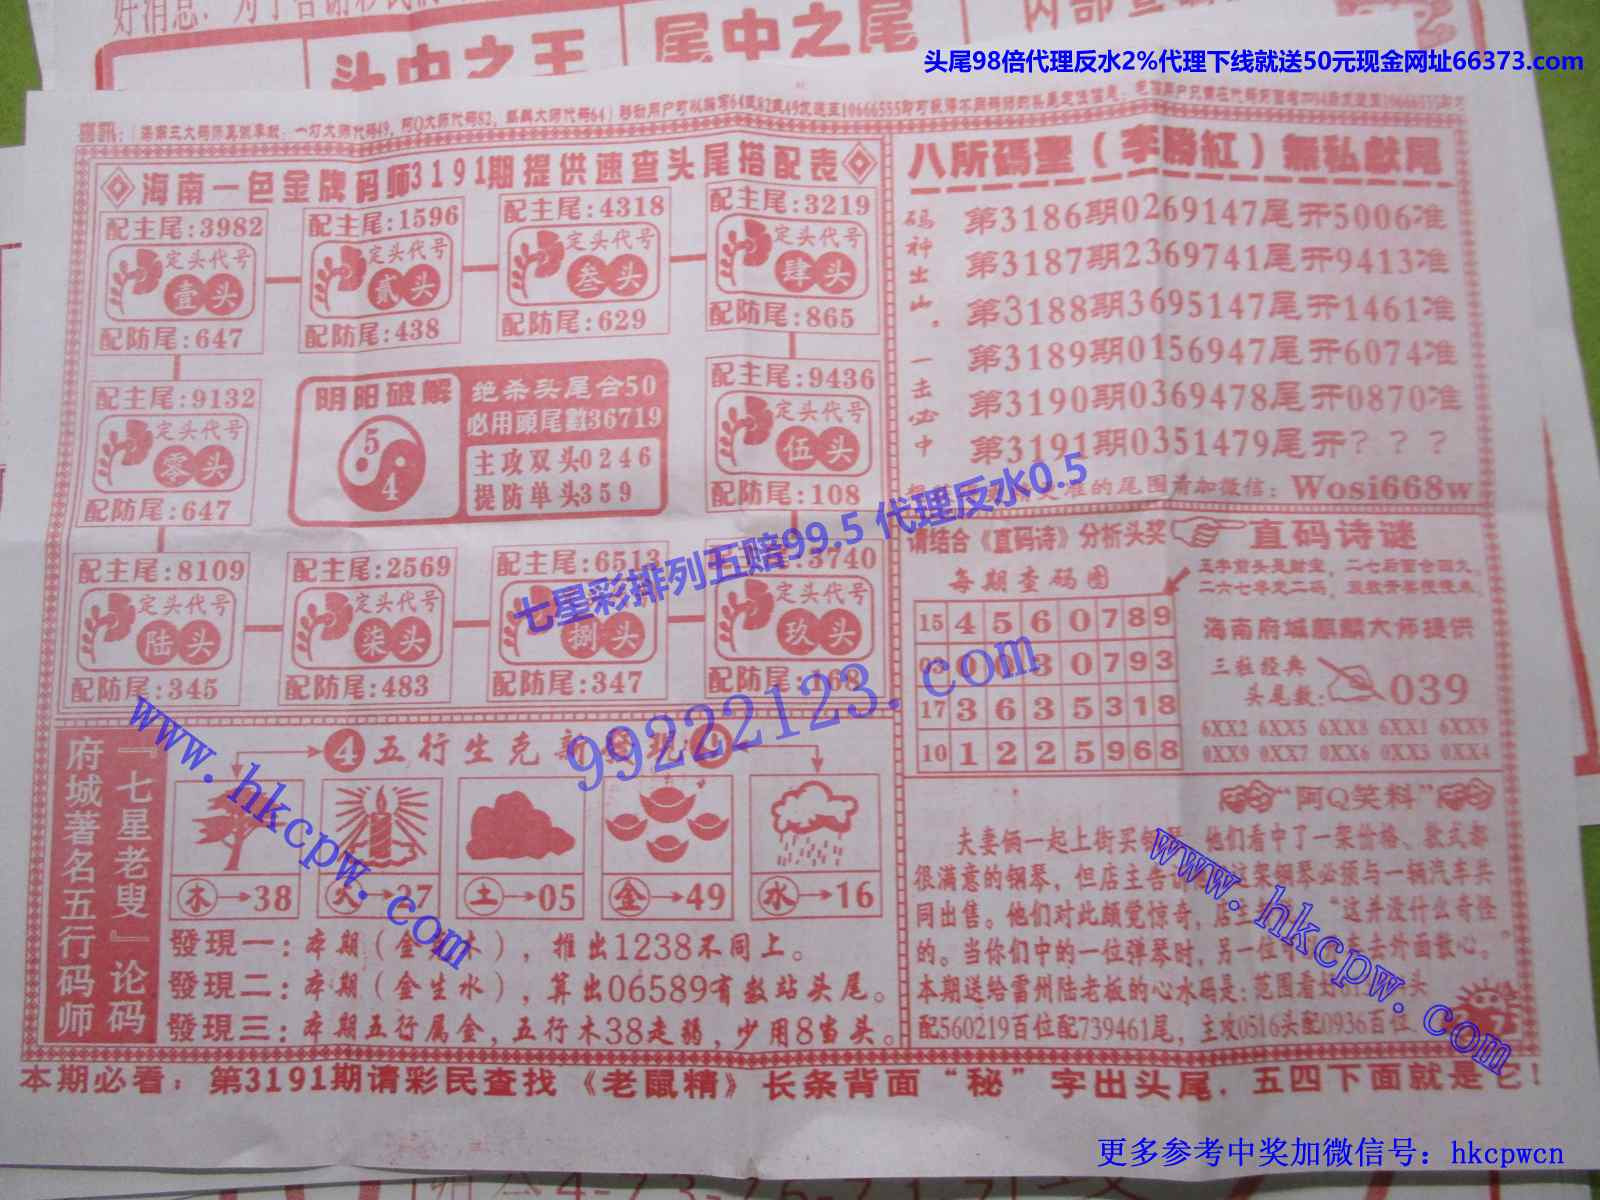 好消息
头中之王
尾中之尾
头尾98倍代理反水2%代理下线就送50元现金网址66373.com
海南一色金牌码师3191期提供速查头尾搭配表
配主尾:3982
定头代号
壹头
配防尾:647
配主尾:1596
定头代号
贰头
配防尾:438
配主尾:4318
定头代号
叁头
配防尾:629
配主尾:3219
定头代号
肆头
配防尾:865
配主尾:9132
定头代号
零头
配防尾:647
阴阳破解
5
4
绝杀头尾合50
必用頭尾數36719
主攻双头0246
提防单头359
配主尾:9436
定头代号
伍头
配防尾:108
配主尾:8109
定头代号
陆头
配防尾:345
配主尾:2569
定头代号
柒头
配防尾:483
配主尾:6513
捌头
配防尾:347
3740
定头代号
玖头
配防尾:168
八所碼聖(李勝紅)無私獻尾
码神出山。一击必中
第3186期0269147尾开5006准
第3187期2369741尾开9413准
第3188期3695147尾开1461准
第3189期0156947尾开6074准
第3190期0369478尾开0870准
第3191期0351479尾开???
的尾围请加微信:Wosi668w
七星彩排列五赔99.5 代理反水0.5
请结合《直码诗》分析头奖
每期查码图
15 4 5 6 0 7 8 9
3 0 7 9 3
17 3 6 3 5 3 1 8
10 1 2 2 5 9 6 8
直码诗谜
海南府城麒麟大师提供
三粒经典
头尾数:
039
6XX2 6XX5 6XX8 6XX1 6XX9
0XX9 0XX7 0XX6 0XX5 0XX4
99222123.com
『七星老叟』论码
府城著名五行码师
④五行生克
木→38
火→27
土→05
金→49
水→16
發現一:本期(金 木),推出1238不同上。
發現二:本期(金生水),算出06589有数站头尾。
發現三:本期五行属金,五行木38走弱,少用8当头。
“阿Q笑料”
夫妻俩一起上街买钢琴,他们看中了一架价格、款式都
很满意的钢琴,但店主告 这架钢琴必须与一辆汽车头
同出售。他们对此颇觉惊奇,店主 “这并没什么奇怪
的。当你们中的一位弹琴时,另一位 去外面散心。”
本期送给雷州陆老板的心水码是:范围看好 头
配560219百位配739461尾,主攻0516头配0936百位
www.hkcpw.com
www.hkcpw.com
本期必看:第3191期请彩民查找《老鼠精》长条背面“秘”字出头尾,五四下面就是它!
更多参考中奖加微信号:hkcpwcn